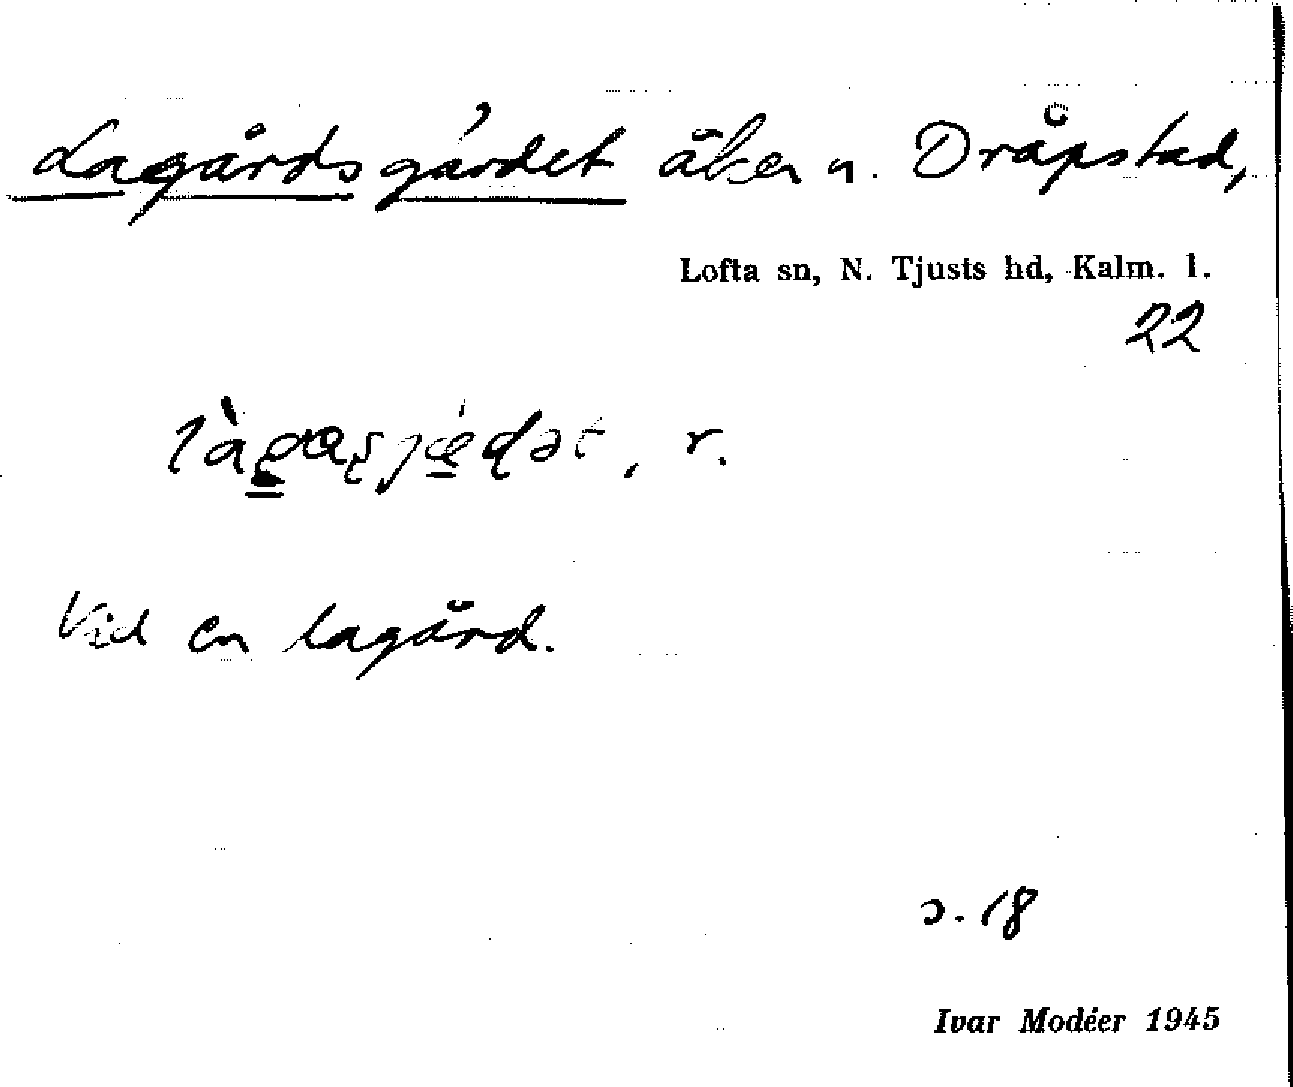 Lagårdsgärdet åker n. Dråpstad,
Lofta sn, N. Tjusts hd, Kalm. l.
22
r.
Vid en lagård.
s. 18
Ivar Modéer 1945